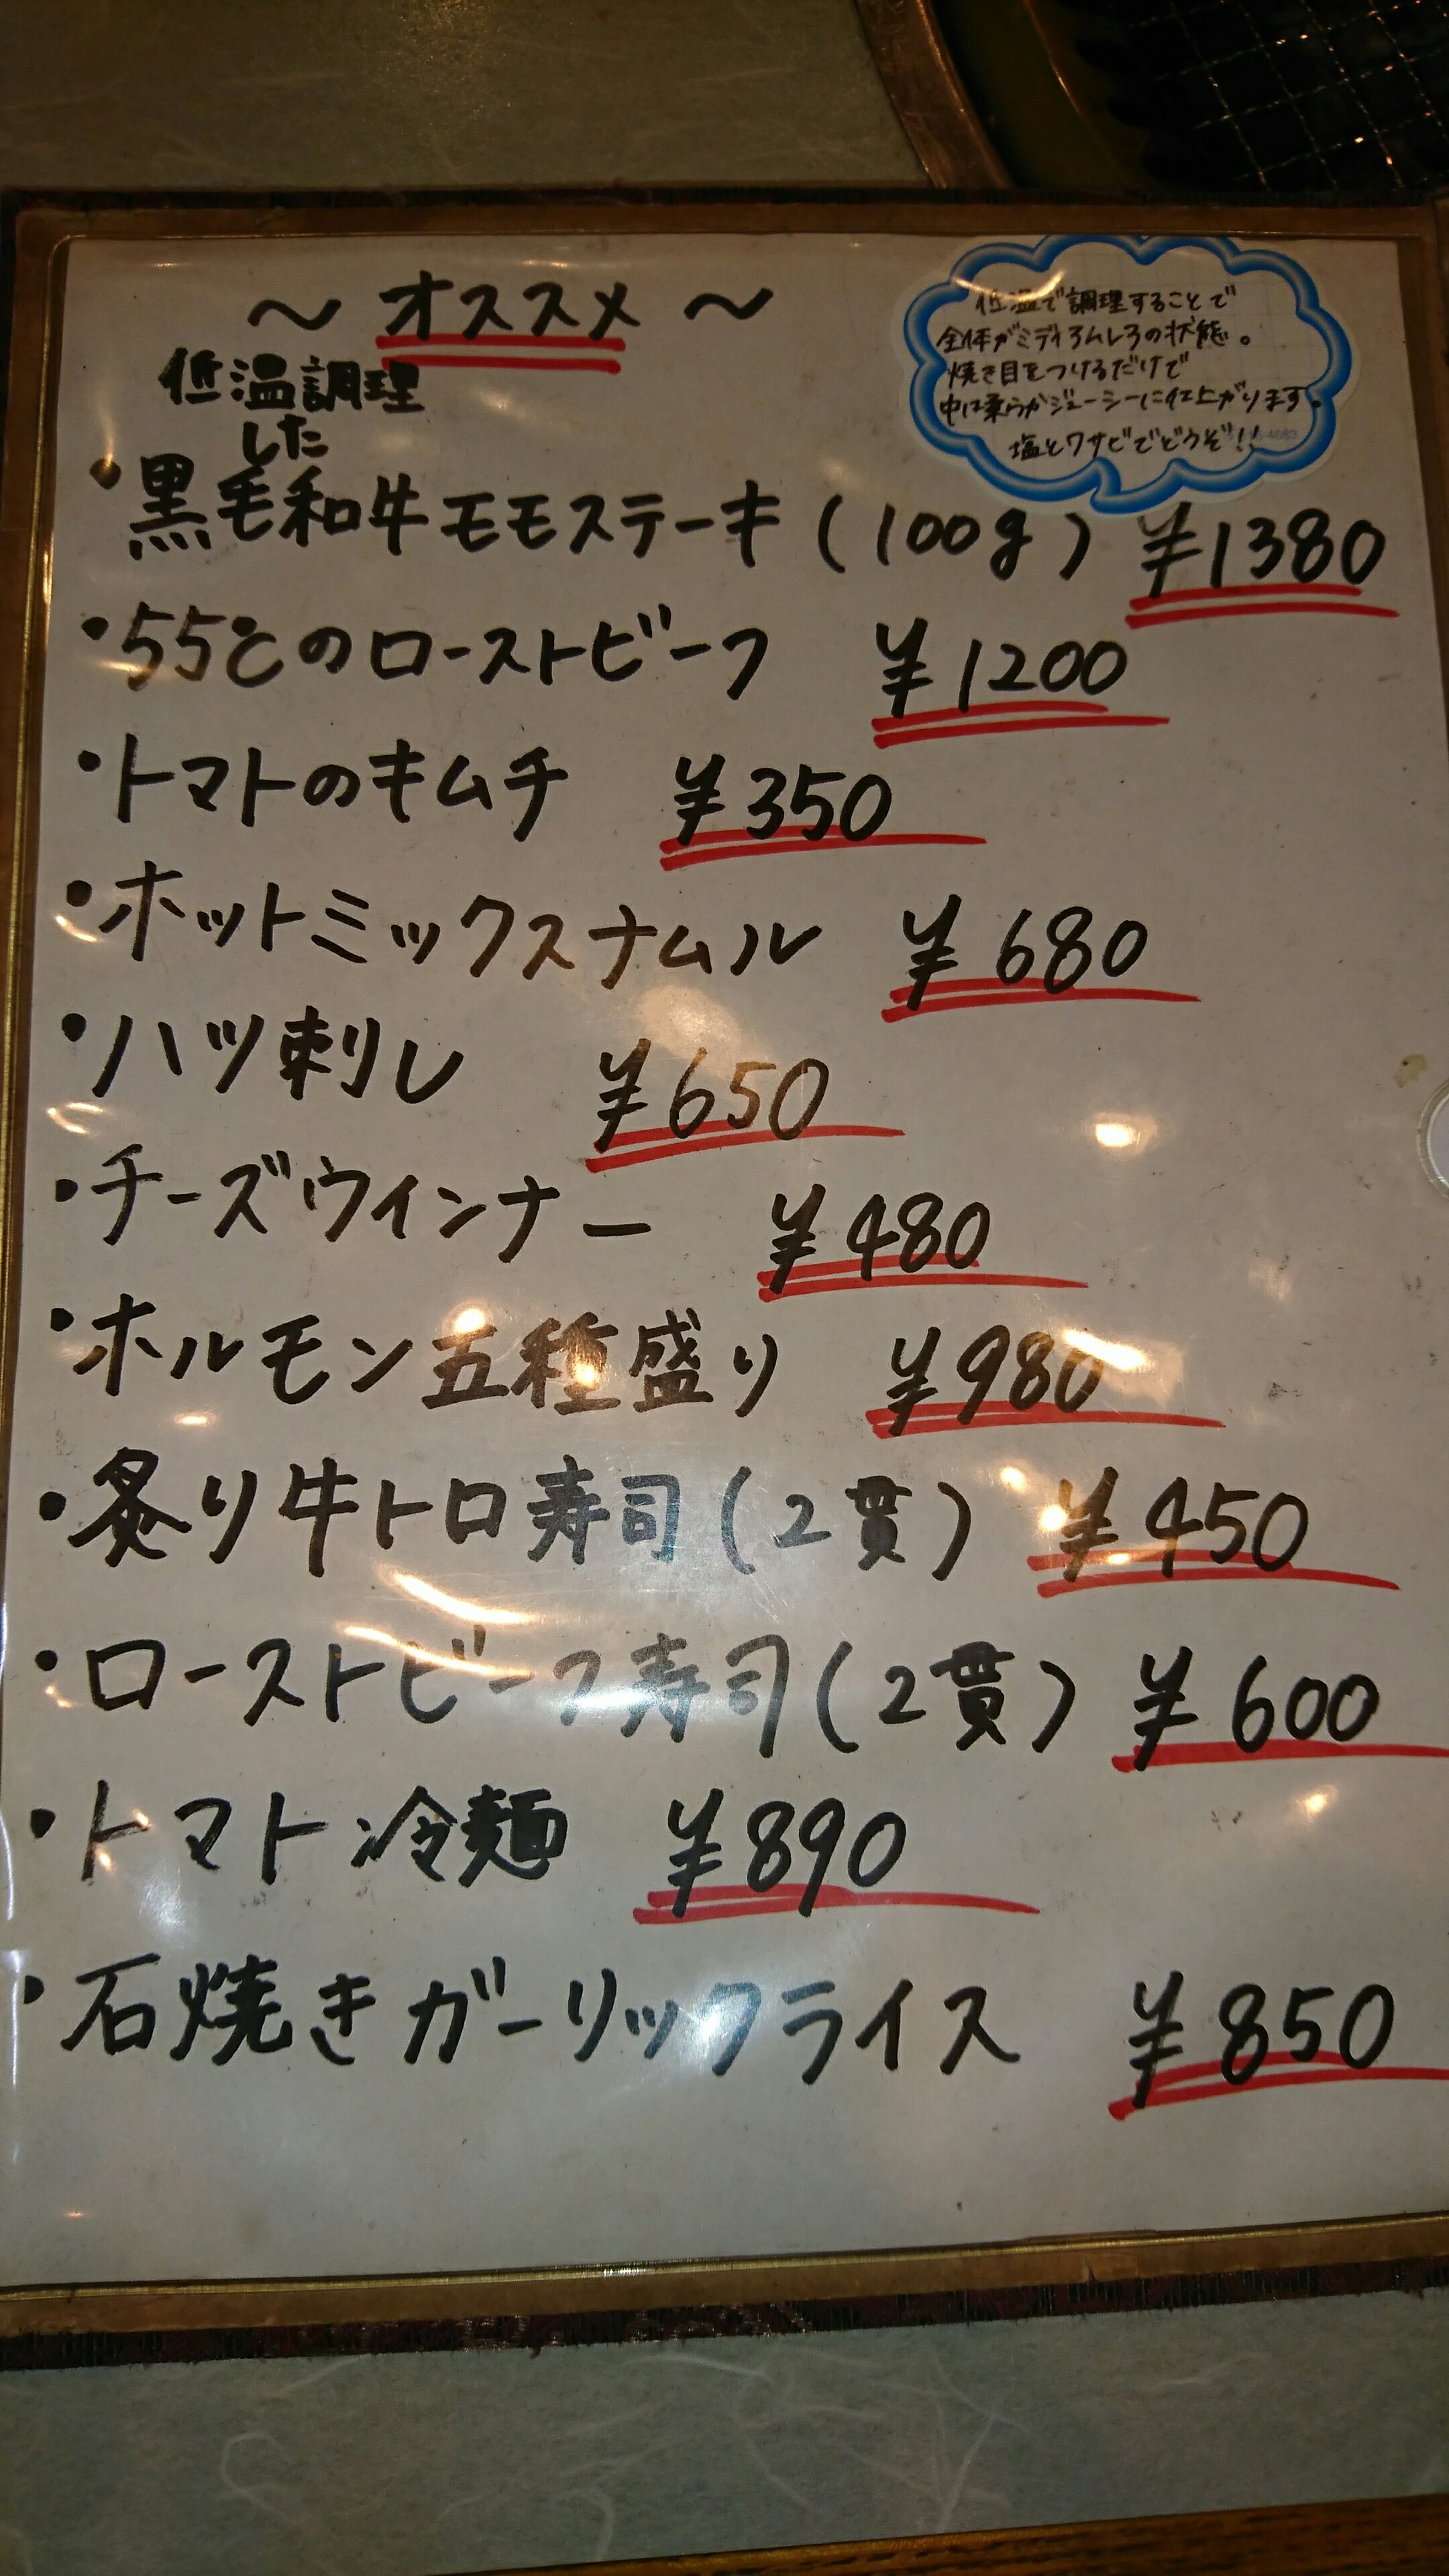 ～ オススメ ～
低温で調理することで
全体がミディアムレアの状態。
焼き目をつけるだけで
中は柔らかジューシーに仕上がります。
塩とワサビでどうぞ!!
低温調理
した
・黒毛和牛モモステーキ(100g) ¥1380
・55℃のローストビーフ ¥1200
・トマトのキムチ ¥350
・ホットミックスナムル ¥680
・ハツ刺し ¥650
・チーズウインナー ¥480
・ホルモン五種盛り ¥980
・炙り牛トロ寿司(2貫) ¥450
・ローストビーフ寿司(2貫) ¥600
・トマト冷麺 ¥890
・石焼きガーリックライス ¥850